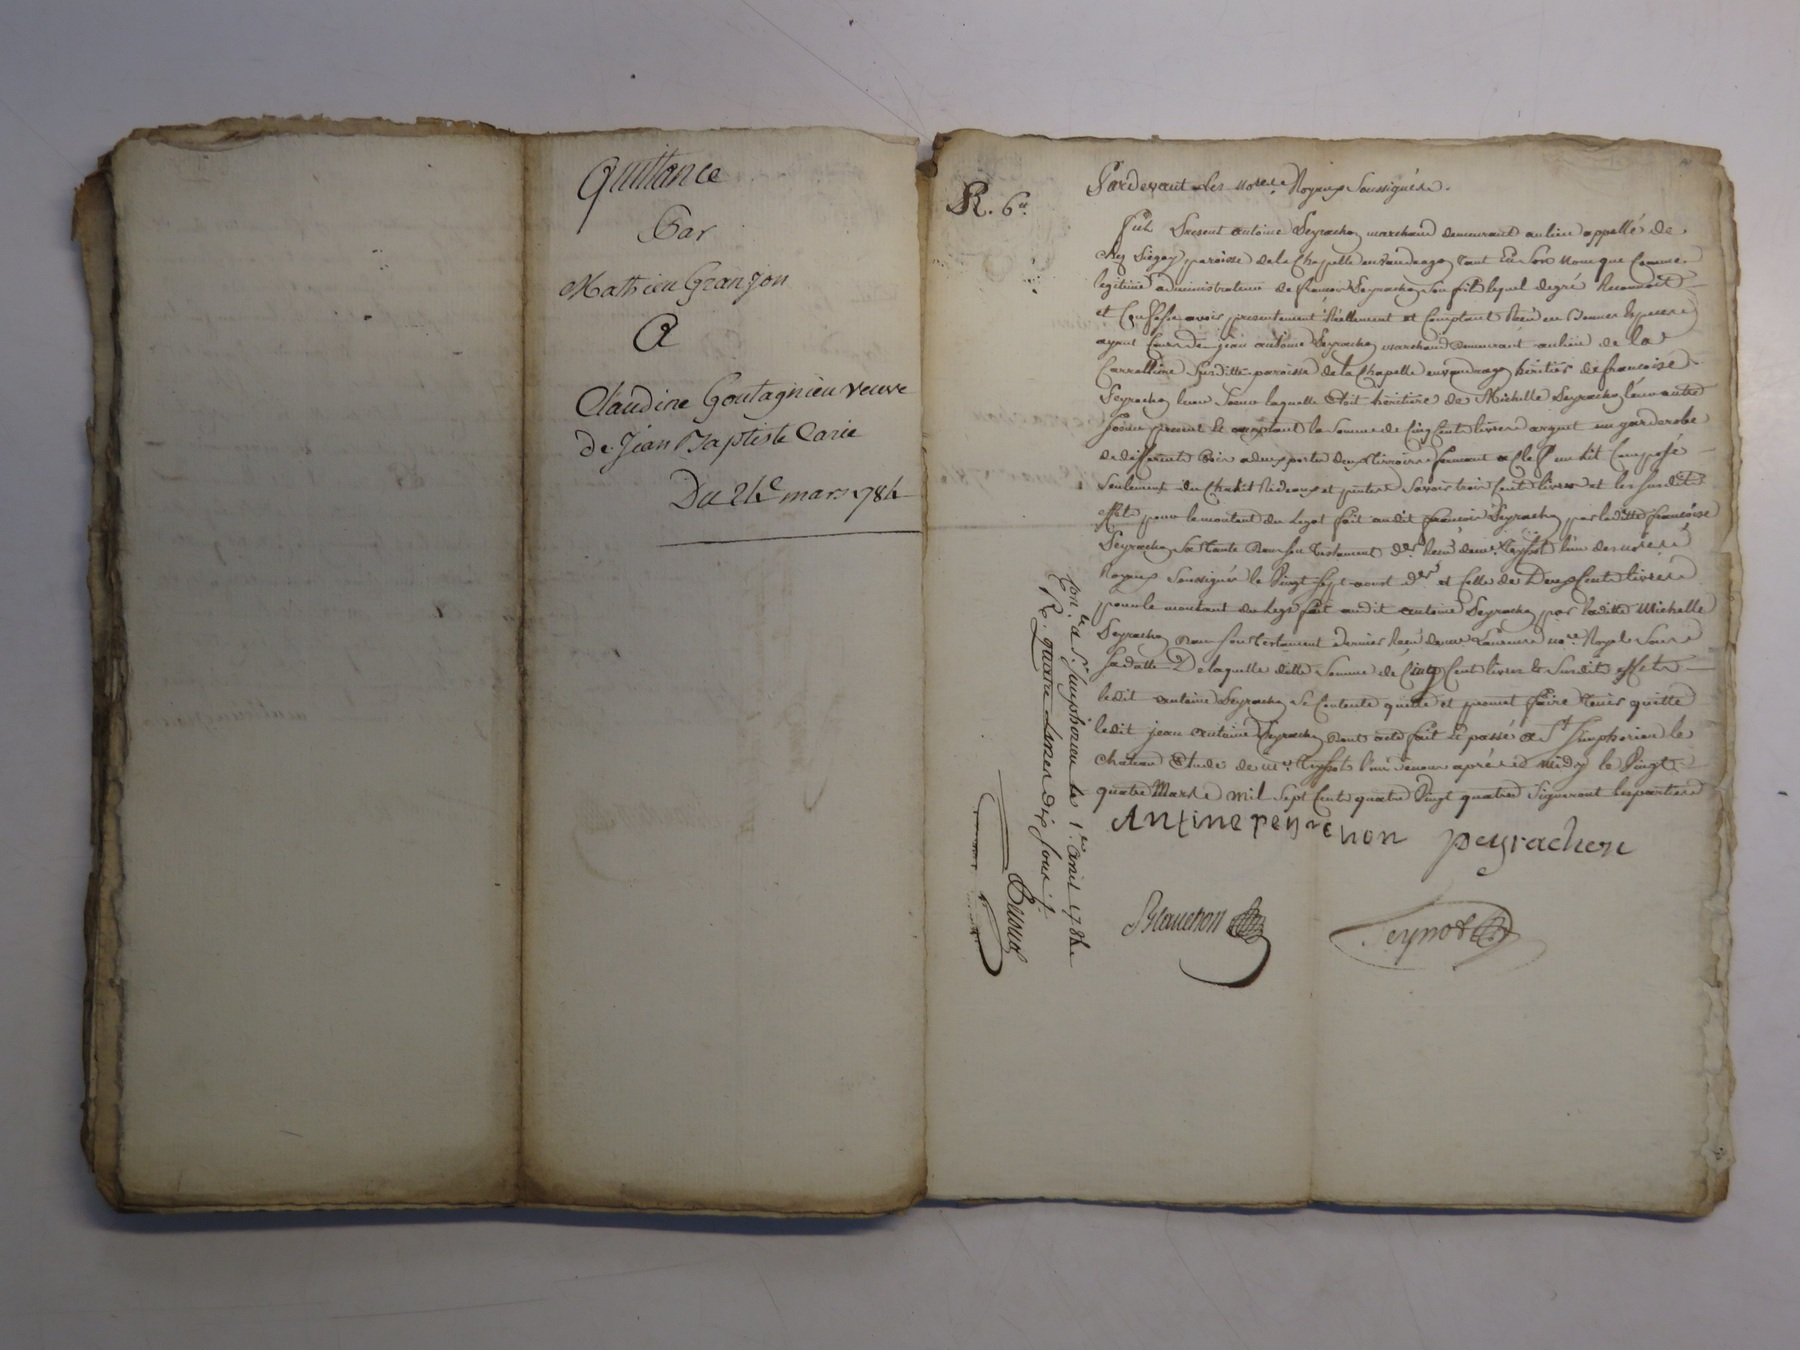 Quittance
Par
Mathieu Granjon
A
Claudine Goutagnieu veuve
de Jean Baptiste Carie
Du 24e mars 1784
R. 6
Pardevant Les no.res Royaux Soussignés.
Fut Present antoine Peyrachon marchand demeurant au lieu appellé de
chez paroisse de la Chapelle envaudragon tant En Son Nom que Comme
legitime administrateur de francois Peyrachon Son fils lequel de gré Reconnoit
et Confesse avoir presentement Réellement et Comptant Reçu en Bonnes Especes
ayant Cours de jean antoine Peyrachon marchand Demeurant au lieu de la
Susditte paroisse de la Chapelle envaudragon héritier de francoise
Peyrachon leur Soeur laquelle Etoit héritiere de Michelle Peyrachon leur autre
Soeur present Et acceptant la Somme de Cinq Cent livres argent un garderobe
de differents Bois a deux portes deux tiroirs fermant a Clef un lit Composé
Seulement du Chalit Rideaux et Savoir trois Cent livres et les Susdits
effets pour le montant du Legat fait audit francois Peyrachon par laditte francoise
Peyrachon Sa Tante Dans Son Testament Der Reçu deme. l'un des no.res
Royaux Soussignés le Vingt Sept aout der. et Celle de Deux Cents livres
pour le montant du Legs fait audit antoine Peyrachon par laditte Michelle
Peyrachon Dans Son testament dernier Reçu de me. no.re Royal Sous
Sa datte De laquelle ditte Somme de Cinq Cent livres & Susdits effets
ledit antoine Peyrachon Se Contente quitte et promet faire Tenir quitte
ledit jean antoine Peyrachon Dont acte fait Et passé a St. Simphorien le
chateau Etude de me. l'un d'enous après Midy le Vingt
quatre Mars Mil Sept Cent quatre Vingt quatre Signeront les parties
Antine peyrachon peyrachon
Blanchon
Con.le a St. Simphorien le 1.er avril 1784
R. quatre Livres dix sous